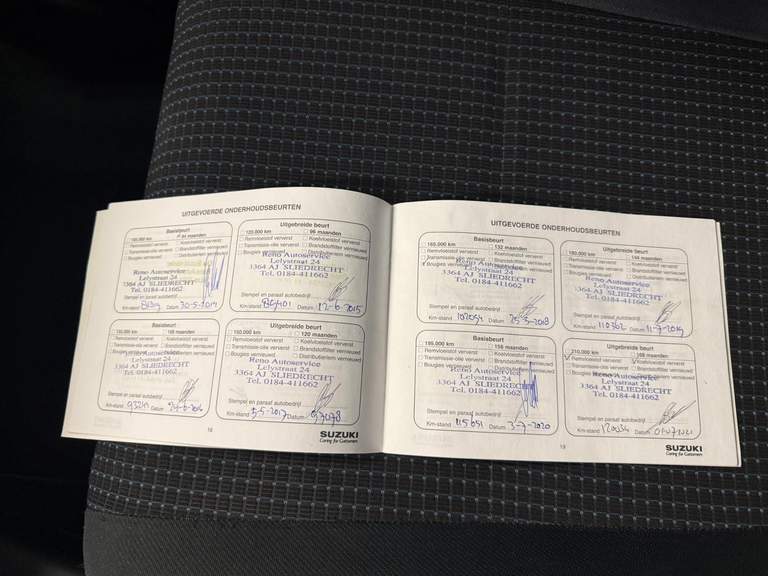 UITGEVOERDE ONDERHOUDSBEURTEN
Basisbeurt
84 maanden
Remvloeistof ververst
Koelvloeistof ververst
Transmissie-olie ververst
Brandstoffilter vernieuwd
Bougies vernieuwd
Distributieriem vernieuwd
Reno Autoservice
Lelystraat 24
3364 AJ SLIEDRECHT
Tel. 0184-411662
Stempel en paraaf autobedrijf
Km-stand Datum 20-5-2014
Uitgebreide beurt
120.000 km
96 maanden
Remvloeistof ververst
Koelvloeistof ververst
Transmissie-olie ververst
Brandstoffilter vernieuwd
Bougies vernieuwd
Distributieriem vernieuwd
Reno Autoservice
Lelystraat 24
3364 AJ SLIEDRECHT
Tel. 0184-411662
Stempel en paraaf autobedrijf
Km-stand Datum 12-6-2015
Basisbeurt
108 maanden
Remvloeistof ververst
Koelvloeistof ververst
Transmissie-olie ververst
Brandstoffilter vernieuwd
Bougies vernieuwd
Distributieriem vernieuwd
Reno Autoservice
Lelystraat 24
3364 AJ SLIEDRECHT
Tel. 0184-411662
Stempel en paraaf autobedrijf
Km-stand Datum
Uitgebreide beurt
150.000 km
120 maanden
Remvloeistof ververst
Koelvloeistof ververst
Transmissie-olie ververst
Brandstoffilter vernieuwd
Bougies vernieuwd
Distributieriem vernieuwd
Reno Autoservice
Lelystraat 24
3364 AJ SLIEDRECHT
Tel. 0184-411662
Stempel en paraaf autobedrijf
Km-stand 5-5-2017 Datum 97078
18
SUZUKI
Caring for Customers
UITGEVOERDE ONDERHOUDSBEURTEN
Basisbeurt
165.000 km
132 maanden
Remvloeistof ververst
Koelvloeistof ververst
Transmissie-olie ververst
Brandstoffilter vernieuwd
Bougies vernieuwd
Distributieriem vernieuwd
Reno Autoservice
Lelystraat 24
3364 AJ SLIEDRECHT
Tel. 0184-411662
Stempel en paraaf autobedrijf
Km-stand 102054 Datum 25-5-2018
Uitgebreide beurt
180.000 km
144 maanden
Remvloeistof ververst
Koelvloeistof ververst
Transmissie-olie ververst
Brandstoffilter vernieuwd
Bougies vernieuwd
Distributieriem vernieuwd
Reno Autoservice
Lelystraat 24
3364 AJ SLIEDRECHT
Tel. 0184-411662
Stempel en paraaf autobedrijf
Km-stand 110362 Datum 11-7-2019
Basisbeurt
195.000 km
156 maanden
Remvloeistof ververst
Koelvloeistof ververst
Transmissie-olie ververst
Brandstoffilter vernieuwd
Bougies vernieuwd
Distributieriem vernieuwd
Reno Autoservice
Lelystraat 24
3364 AJ SLIEDRECHT
Tel. 0184-411662
Stempel en paraaf autobedrijf
Km-stand 115651 Datum 3-7-2020
Uitgebreide beurt
210.000 km
168 maanden
Remvloeistof ververst
Koelvloeistof ververst
Transmissie-olie ververst
Brandstoffilter vernieuwd
Bougies vernieuwd
Distributieriem vernieuwd
Reno Autoservice
Lelystraat 24
3364 AJ SLIEDRECHT
Tel. 0184-411662
Stempel en paraaf autobedrijf
Km-stand 120034 Datum
19
SUZUKI
Caring for Customers